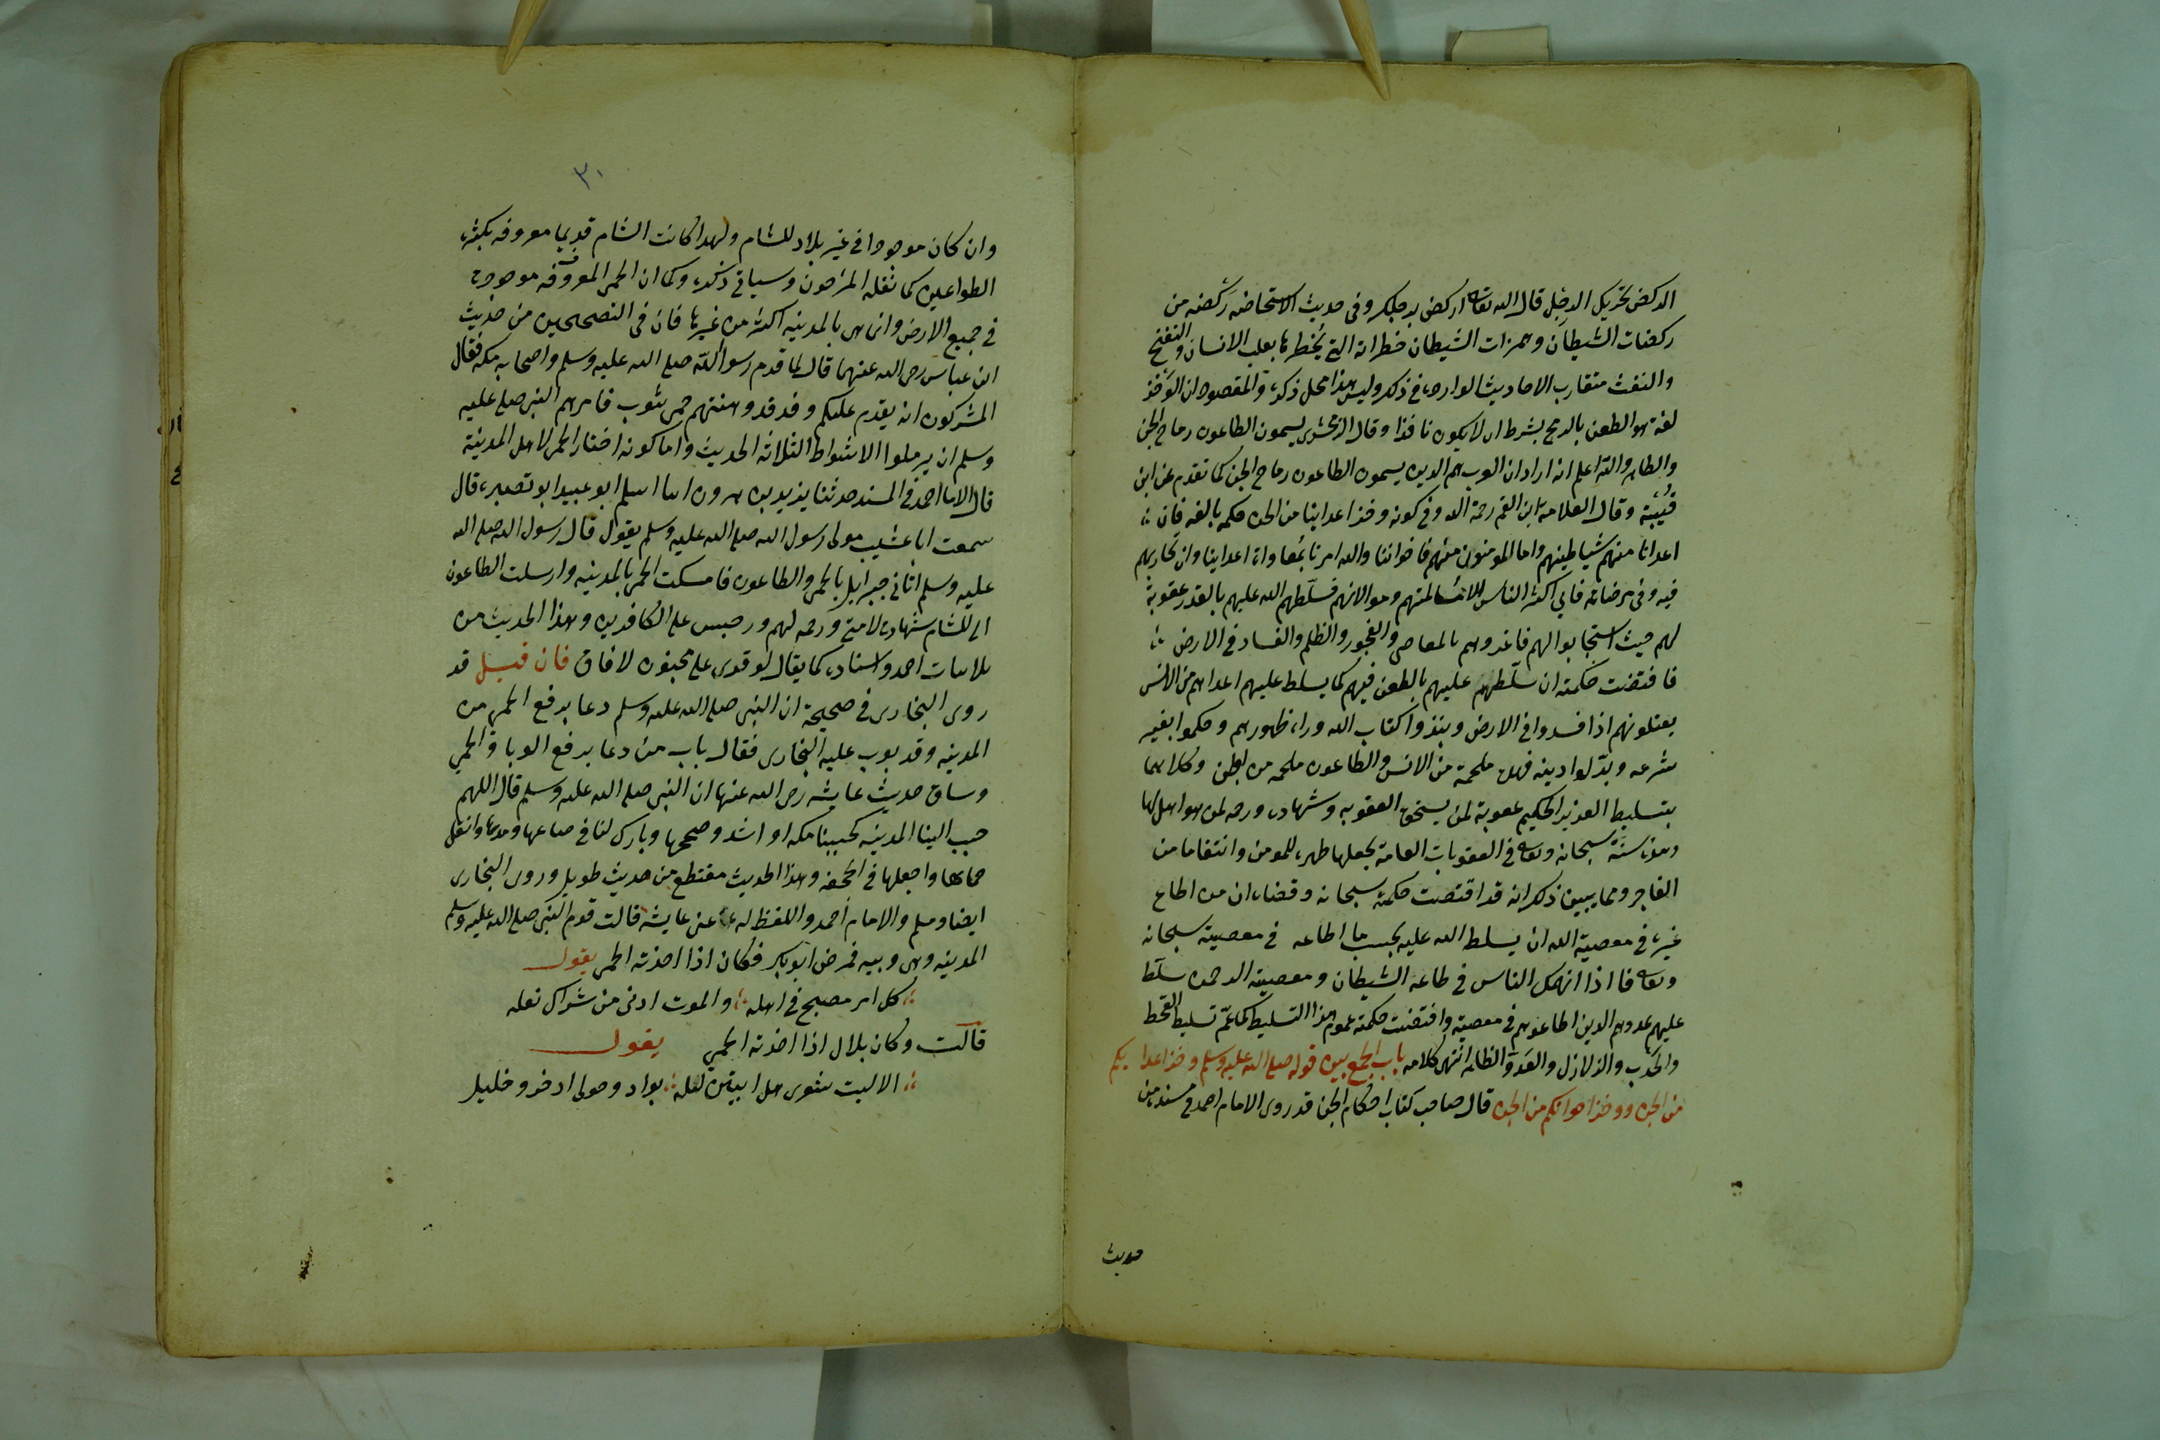 الركض تحريك الرجل قال الله تعالى اركض برجلك وفى حديث الاستحاضه ركضه من
ركضات الشيطان وهمزات الشيطان خطراته التي يخطرها بقلب الانسان والنفخ
والنفث متقارب الاحاديث الوارده فى ذلك وليس هذا محل ذكره والمقصود ان الوخز
لغة هو الطعن بالرمح بشرط ان لا يكون نافذا وقال الزمخشرى يسمون الطاعون رماح الجن
والظاهر والله اعلم انه اراد ان العرب هم الدين يسمون الطاعون رماح الجن كما تقدم عن ابن
قتيبة وقال العلامة ابن القيم رحمة الله وفى كونه وخز اعداينا من الجن حكمه بالغه فان
اعدانا منهم شياطينهم واما المومنون منهم فاخواننا والله امرنا بمعاداة اعداينا وان نحاربهم
فيه وفى مرضاته فابى اكثر الناس الا مسالمتهم وموالاتهم فسلطهم الله عليهم بالقدر عقوبة
لهم حيث استجابوا لهم فاغروهم بالمعاصى والفجور والظلم والفساد فى الارض
فاقتضت حكمته ان سلطهم عليهم بالطعن فيهم كما يسلط عليهم اعداهم من الانس
يقتلونهم اذا افسدوا فى الارض ونبذوا كتاب الله وراء ظهورهم وحكموا بغير
شرعه وبدلوا دينه فهى ملحمة من الانس والطاعون ملحمه من الجن وكلاهما
بتسليط العزيز الحكيم عقوبة لمن يستحق العقوبه وشهاده ورحمه لمن هو اهل لها
وهذه سنة سبحانه وتعالى فى العقوبات العامة يجعلها طهره للمومن وانتقاما من
الفاجر ومما يبين ذلك انه قد اقتضت حكمته سبحانه وقضاه ان من اطاع
غيره فى معصية الله ان يسلط الله عليه بحسب ما اطاعه فى معصيته سبحانه
وتعالى فاذا انهمك الناس فى طاعه الشيطان ومعصية الرحمن سلط
عليهم عدوهم الدين اطاعوهم فى معصيته واقتضت حكمته عموم هذا التسليط كما عم تسليط القحط
والجدب والزلازل والعدو الظالم انتهى كلامه باب الجمع بين قوله صلى الله عليه وسلم وخز اعدايكم
من الجن ووخز اخوانكم من الجن قال صاحب كتاب احكام الجن قد روى الامام احمد فى مسنده من
حديث
٣٠
وان كان موجودا فى غير بلاد للشام ولهدا كانت الشام قديما معروفه بكثره
الطواعين كما نقله المرخون وسياتى ذكره وكما ان الحمى المعروفه موجوده
فى جميع الارض وانى هى بالمدينه اكثر من غيرها فان فى الصحيحين من حديث
ابن عباس رضى الله عنهما قال لما قدم رسول الله صلى الله عليه وسلم واصحابه مكه فقال
المشركون انه يقدم عليكم وفد قد وهنتهم حمى يثوب فامرهم النبى صلى عليه
وسلم ان يرملوا الاشواط الثلاثه الحديث واما كونه اختار الحمى لاهل المدينة
قال الامام احمد فى المسند حدثنا يزيد بن هرون انبا اسلم ابو عبيد ابو نصيره قال
سمعت ابا عسيب مولى رسول الله صلى الله عليه وسلم يقول قال رسول الله صلى الله
عليه وسلم اتانى جبرايل بالحمى والطاعون فامسكت الحمى بالمدينه وارسلت الطاعون
الى للشام شهادة لامتى ورحمه لهم ورجس على الكافرين وهذا الحديث من
ثلاثيات احمد واسناده كما يقال لو قرى على مجنون لافاق فان قيل قد
روى البخارى فى صحيحة ان النبى صلى الله عليه وسلم دعا برفع الحمى من
المدينه وقد بوب عليه البخارى فقال باب من دعا برفع الوبا والحمى
وساق حديث عايشه رضى الله عنها ان النبى صلى الله عليه وسلم قال اللهم
حبب الينا المدينه كحبنا مكه او اشد وصححها وبارك لنا فى صاعها ومدها وانقل
حماها واجعلها فى الجحفه وهذا الحديث مقتطع من حديث طويل وروى البخارى
ايضا ومسلم والامام احمد واللفظ له عن عايشه قالت قدم النبى صلى الله عليه وسلم
المدينه وهى وبيه فمرض ابو بكر فكان اذا اخذته الحمى يقول
كل امر مصبح فى اهله والموت ادنى من شراك نعله
قالت وكان بلال اذا اخذته الحمى يقول
الا ليت شعرى هل ابيتن ليله بواد وحولى ادخر وخليل